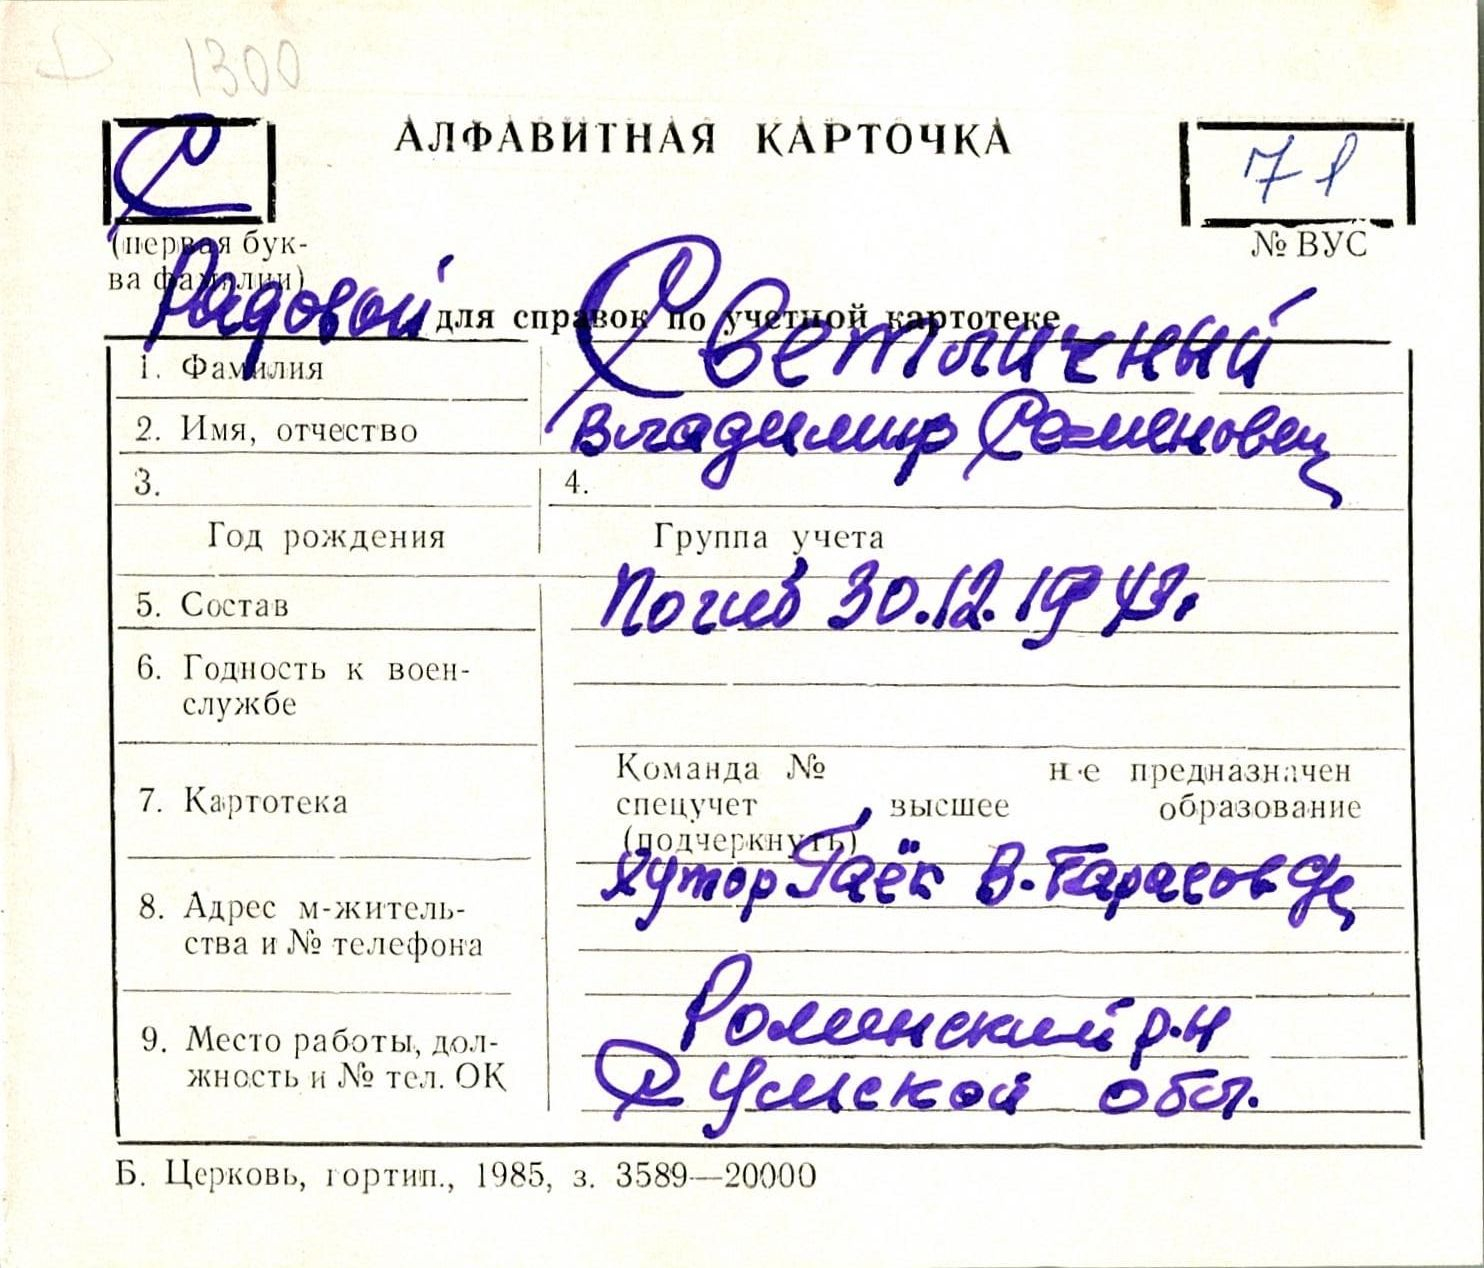 1300
С
АЛФАВИТНАЯ КАРТОЧКА
71
(первая бук-
ва фамилии)
№ ВУС
Рядовой
для справок по учетной картотеке
1. Фамилия
Светличный
2. Имя, отчество
Владимир Семенович
3.
4.
Год рождения
Группа учета
5. Состав
Погиб 30.12.1943г.
6. Годность к воен-
службе
7. Картотека
Команда № не предназначен
спецучет высшее образование
(подчеркнуть)
8. Адрес м-житель-
ства и № телефона
хутор Гаёк В-Тарасовец
9. Место работы, дол-
жность и № тел. ОК
Роменский р-н
Сумской обл.
Б. Церковь, гортип., 1985, з. 3589—20000